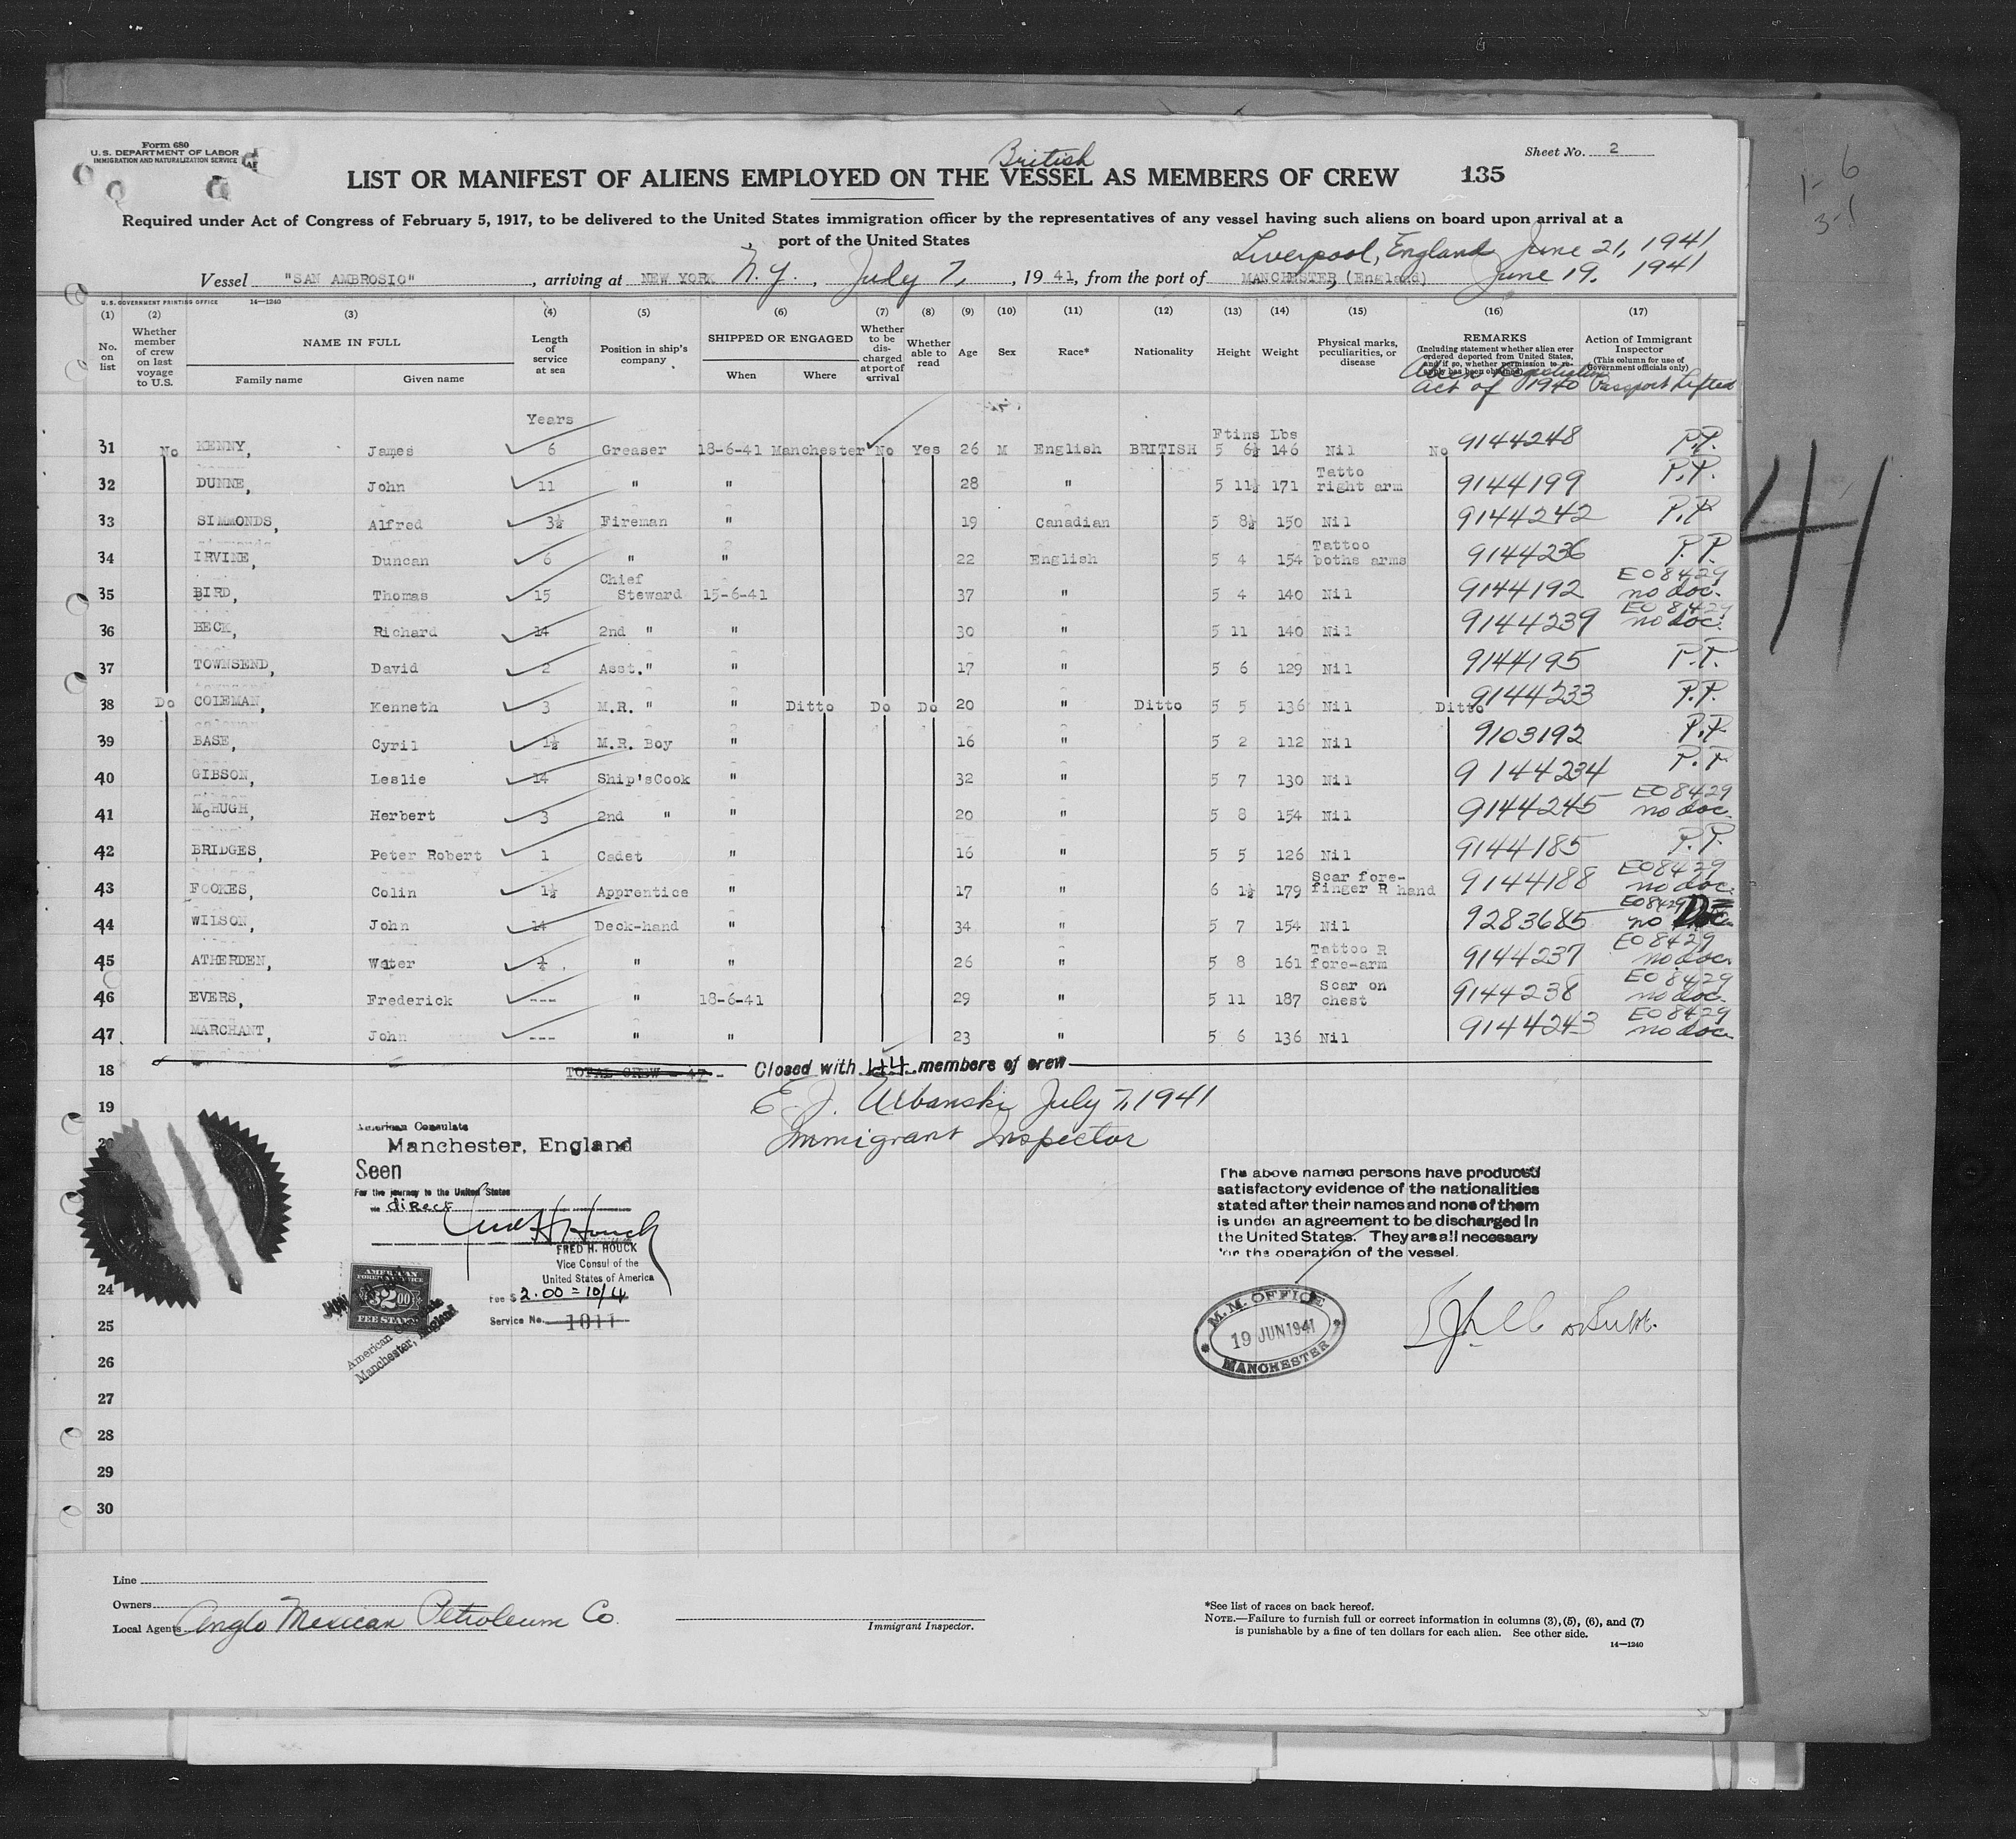 Form 680
U. S. DEPARTMENT OF LABOR
IMMIGRATION AND NATURALIZATION SERVICE
Sheet No. 2
British
LIST OR MANIFEST OF ALIENS EMPLOYED ON THE VESSEL AS MEMBERS OF CREW 135
Required under Act of Congress of February 5, 1917, to be delivered to the United States immigration officer by the representatives of any vessel having such aliens on board upon arrival at a
port of the United States
Liverpool, England June 21, 1941
Vessel "SAN AMBROSIO", arriving at NEW YORK N.Y., July 7, 1941, from the port of MANCHESTER, (England) June 19, 1941
U. S. GOVERNMENT PRINTING OFFICE 14—1240
(1) (2) (3) (4) (5) (6) (7) (8) (9) (10) (11) (12) (13) (14) (15) (16) (17)
No. on list
Whether member of crew on last voyage to U.S.
NAME IN FULL
Family name Given name
Length of service at sea
Position in ship's company
SHIPPED OR ENGAGED
When Where
Whether to be discharged at port of arrival
Whether able to read
Age
Sex
Race*
Nationality
Height
Weight
Physical marks, peculiarities, or disease
REMARKS
(Including statement whether alien ever ordered deported from United States, and if so, whether permission to reapply has been obtained)
Alien Registration Act of 1940
Action of Immigrant Inspector
(This column for use of Government officials only)
Passport Lifted
Years
Ftins Lbs
31 No KENNY, James 6 Greaser 18-6-41 Manchester No Yes 26 M English BRITISH 5 6½ 146 Nil No 9144248 P.P.
32 DUNNE, John 11 " " 28 " 5 11½ 171 Tatto right arm 9144199 P.P.
33 SIMMONDS, Alfred 3½ Fireman " 19 Canadian 5 8½ 150 Nil 9144242 P.P
34 IRVINE, Duncan 6 " " 22 English 5 4 154 Tattoo boths arms 9144236 P.P.
35 BIRD, Thomas 15 Chief Steward 15-6-41 37 " 5 4 140 Nil 9144192 EO 8429 no doc.
36 BECK, Richard 14 2nd " " 30 " 5 11 140 Nil 9144239 EO 8429 no doc.
37 TOWNSEND, David 2 Asst." " 17 " 5 6 129 Nil 9144195 P.P.
38 Do COLEMAN, Kenneth 3 M.R. " " Ditto Do Do 20 " Ditto 5 5 136 Nil Ditto 9144233 P.P.
39 BASE, Cyril 1½ M.R. Boy " 16 " 5 2 112 Nil 9103192 P.P
40 GIBSON, Leslie 14 Ship'sCook " 32 " 5 7 130 Nil 9144234 P.P
41 McHUGH, Herbert 3 2nd " " 20 " 5 8 154 Nil 9144245 EO 8429 no doc.
42 BRIDGES, Peter Robert 1 Cadet " 16 " 5 5 126 Nil 9144185 P.P.
43 FOOKES, Colin 1½ Apprentice " 17 " 6 1½ 179 Scar fore-finger R hand 9144188 EO 8429 no doc.
44 WILSON, John 14 Deck-hand " 34 " 5 7 154 Nil 9283685 EO 8429 no Doc.
45 ATHERDEN, Water " " 26 " 5 8 161 Tattoo R fore-arm 9144237 EO 8429 no doc.
46 EVERS, Frederick --- " 18-6-41 29 " 5 11 187 Scar on chest 9144238 EO 8429 no doc.
47 MARCHANT, John --- " " 23 " 5 6 136 Nil 9144243 EO 8429 no doc.
18 TOTAL CREW - 47 - Closed with 44 members of crew
19 E. J. Urbanski July 7, 1941
Immigrant Inspector
American Consulate
Manchester, England
Seen
For the journey to the United States
via direct
Fred H Houck
FRED H. HOUCK
Vice Consul of the
United States of America
Fee $ 2.00 = 10/4
Service No. 1011
AMERICAN
FOREIGN SERVICE
$2.00
FEE STAMP
American Consulate
Manchester, England
The above named persons have produced
satisfactory evidence of the nationalities
stated after their names and none of them
is under an agreement to be discharged in
the United States. They are all necessary
for the operation of the vessel.
M.M. OFFICE
19 JUN 1941
MANCHESTER
24
25
26
27
28
29
30
Line
Owners
Local Agents Anglo Mexican Petroleum Co.
Immigrant Inspector.
*See list of races on back hereof.
NOTE.—Failure to furnish full or correct information in columns (3), (5), (6), and (7)
is punishable by a fine of ten dollars for each alien. See other side.
14—1240
1- 6
3-1
41